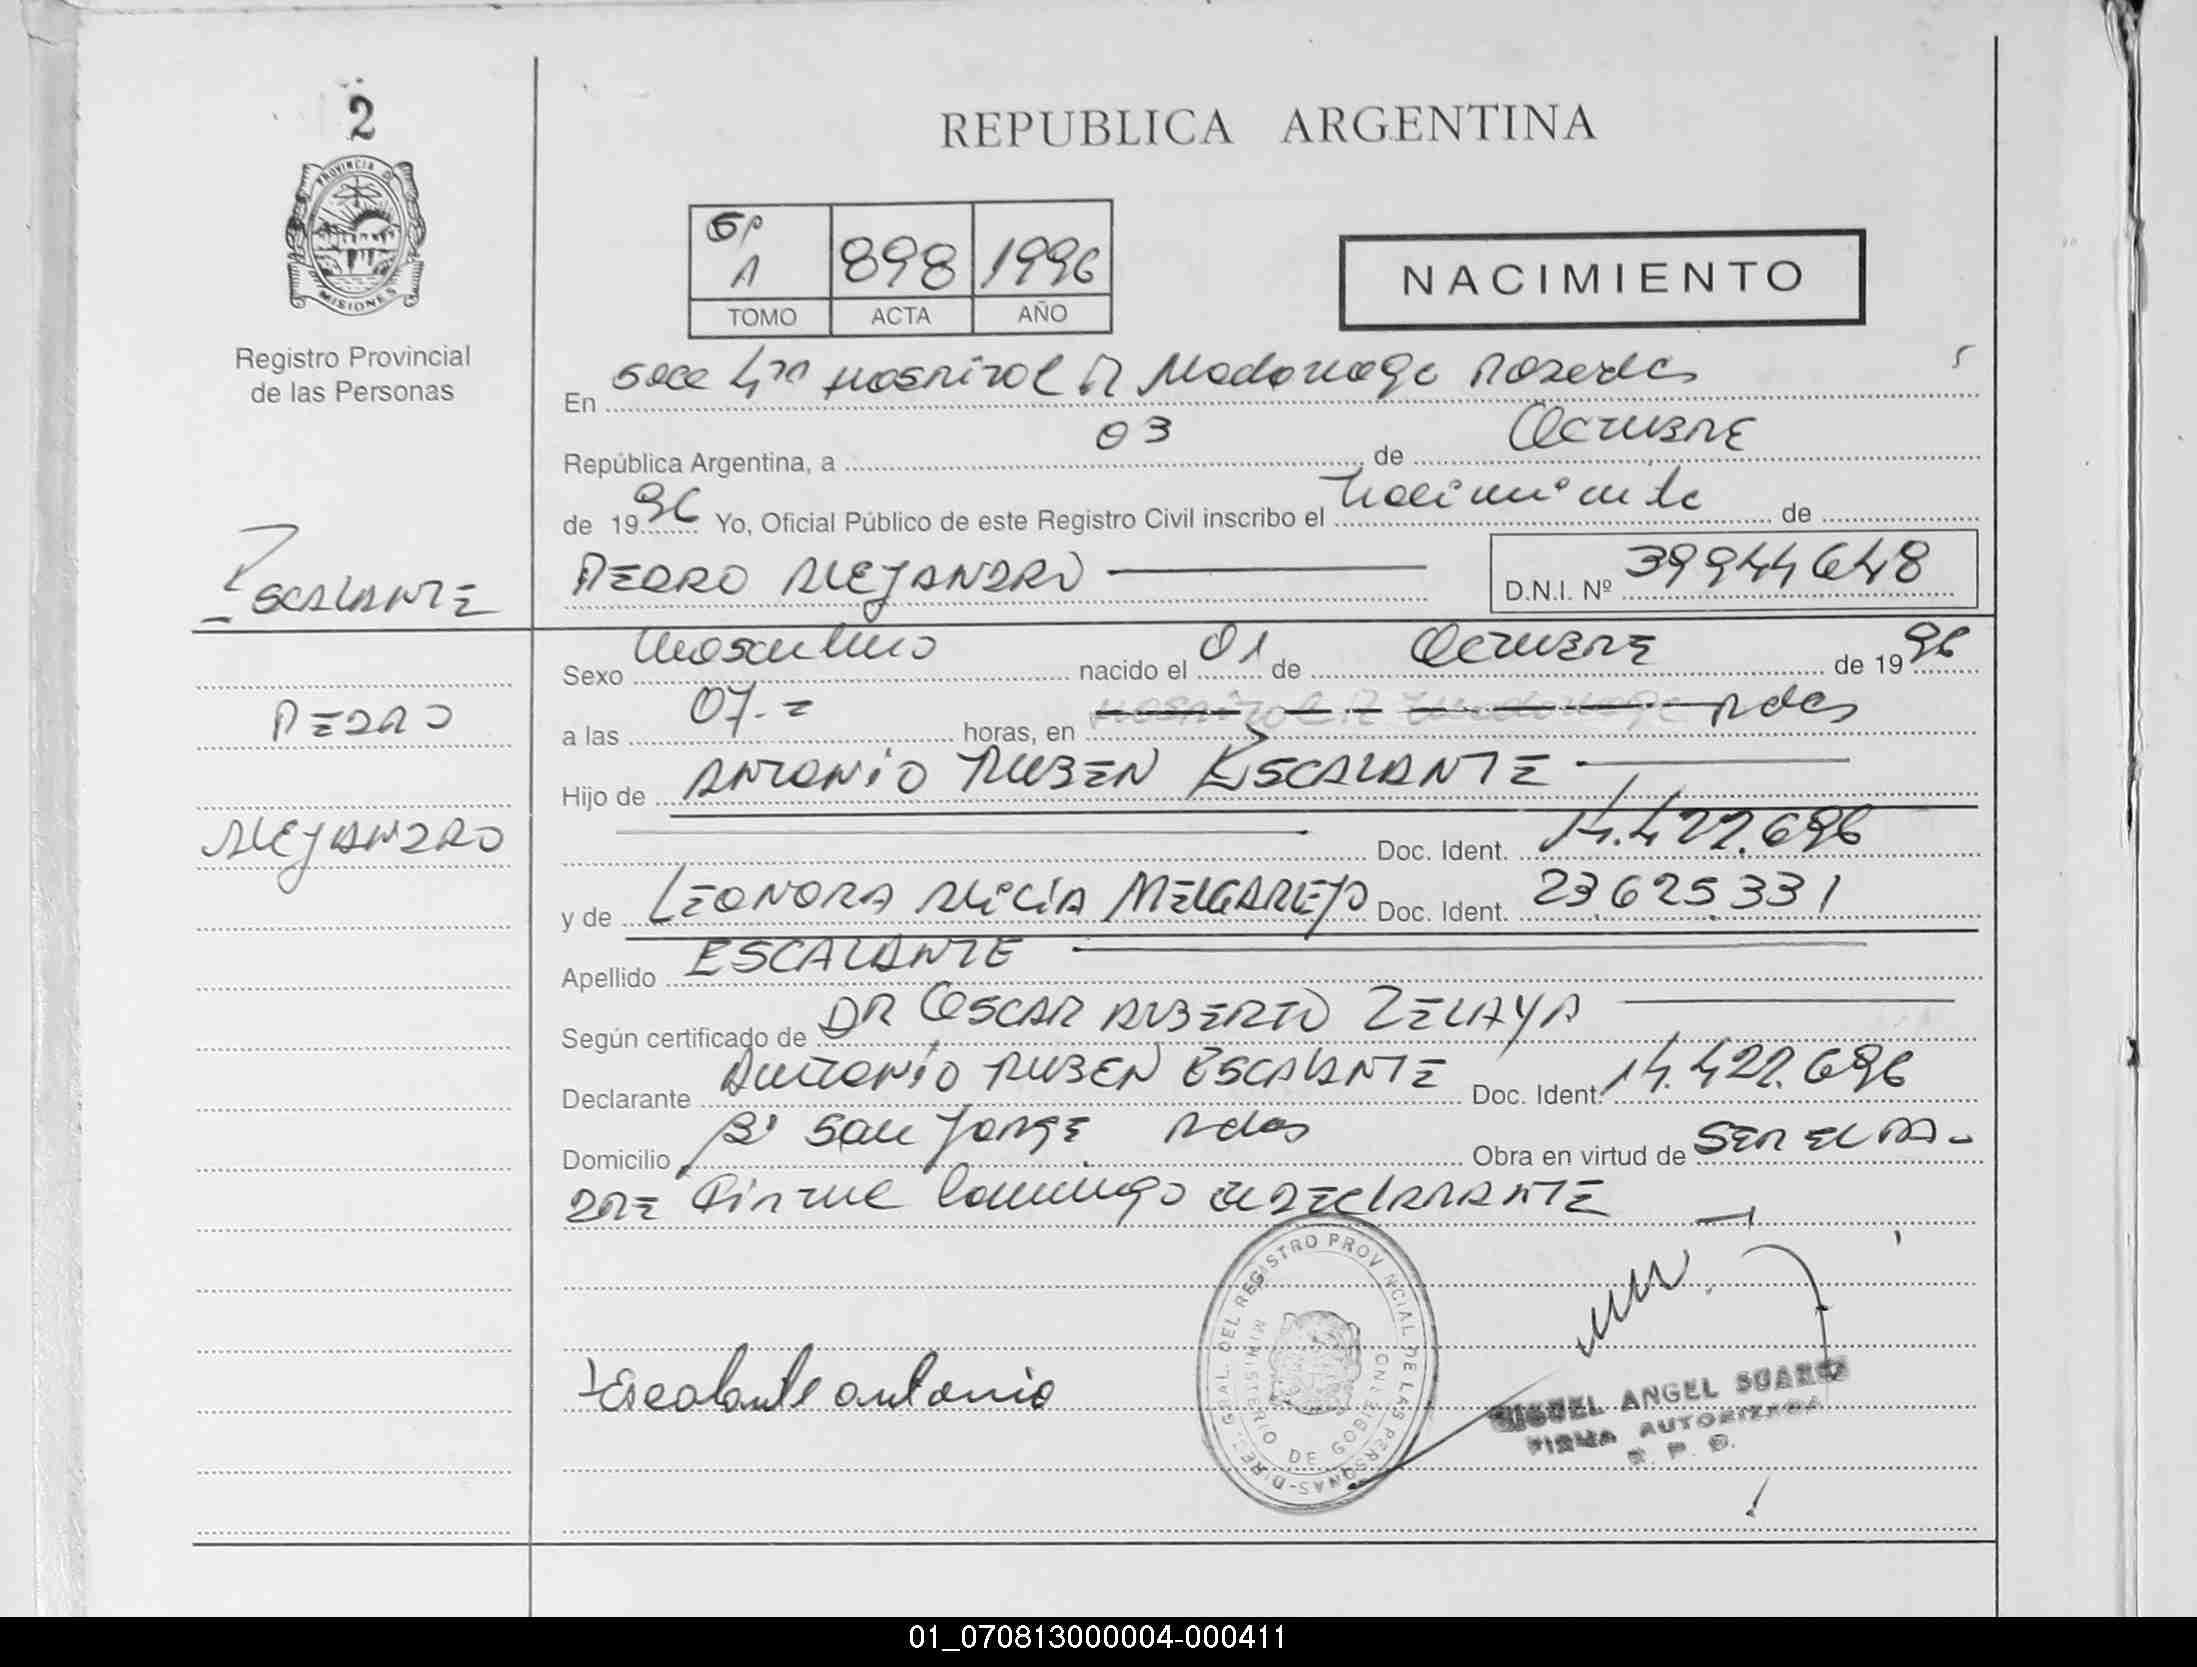 2
PROVINCIA D
MISIONES
Registro Provincial
de las Personas
REPUBLICA ARGENTINA
1
898
1996
TOMO
ACTA
AÑO
NACIMIENTO
En Secc 4ta Hospital R Madariaga Posadas
República Argentina, a 03 de Octubre
de 1996 Yo, Oficial Público de este Registro Civil inscribo el Nacimiento de
PEDRO ALEJANDRO D.N.I. Nº 39944648
ESCALANTE
PEDRO
ALEJANDRO
Sexo Masculino nacido el 01 de Octubre de 1996
a las 07.= horas, en Hospital R Madariaga Pdas
Hijo de ANTONIO RUBEN ESCALANTE
Doc. Ident. 14.422.696
y de LEONORA ALICIA MELGAREJO Doc. Ident. 23.625.331
Apellido ESCALANTE
Según certificado de DR OSCAR ALBERTO ZELAYA
Declarante ANTONIO RUBEN ESCALANTE Doc. Ident. 14.422.696
Domicilio Bº San Jorge Pdas Obra en virtud de SER EL PA-
DRE Firma Conmigo el DECLARANTE
Escalante antonio
DIREC. GRAL. DEL REGISTRO PROVINCIAL DE LAS PERSONAS
MINISTERIO DE GOBIERNO
MIGUEL ANGEL SUAREZ
FIRMA AUTORIZADA
R. P. P.
01_070813000004-000411